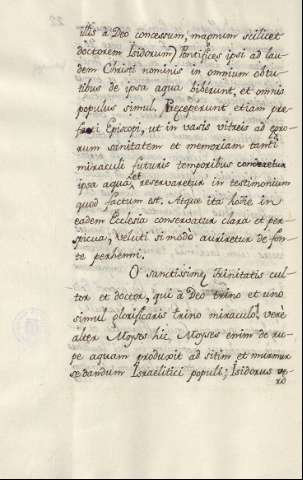 illis a Deo concessum, magnum scilicet
doctorem Isidorum) Pontifices ipsi ad lau-
dem Christi nominis in omnium obtu-
tibus de ipsa aqua biberunt, et omnis
populus simul. Preceperunt etiam pre-
fati Episcopi, ut in vasis vitreis ad egro-
rum sanitatem et memoriam tanti
miraculi futuris temporibus
ipsa aqua, et reservaretur in testimonium
quod factum est. Atque ita hodie in
eadem Ecclesia conservatur clara et pers-
picua, veluti si modo auriretur de fon-
te perhenni.
O sanctissime Trinitatis cul-
tor et doctor, qui à Deo trino et uno
simul glorificaris trino miraculo! vere
alter Moyses hic, Moyses enim de ru-
pe aquam produxit ad sitim et murmur
sedandum Israelitici populi; Isidorus ve-
ro